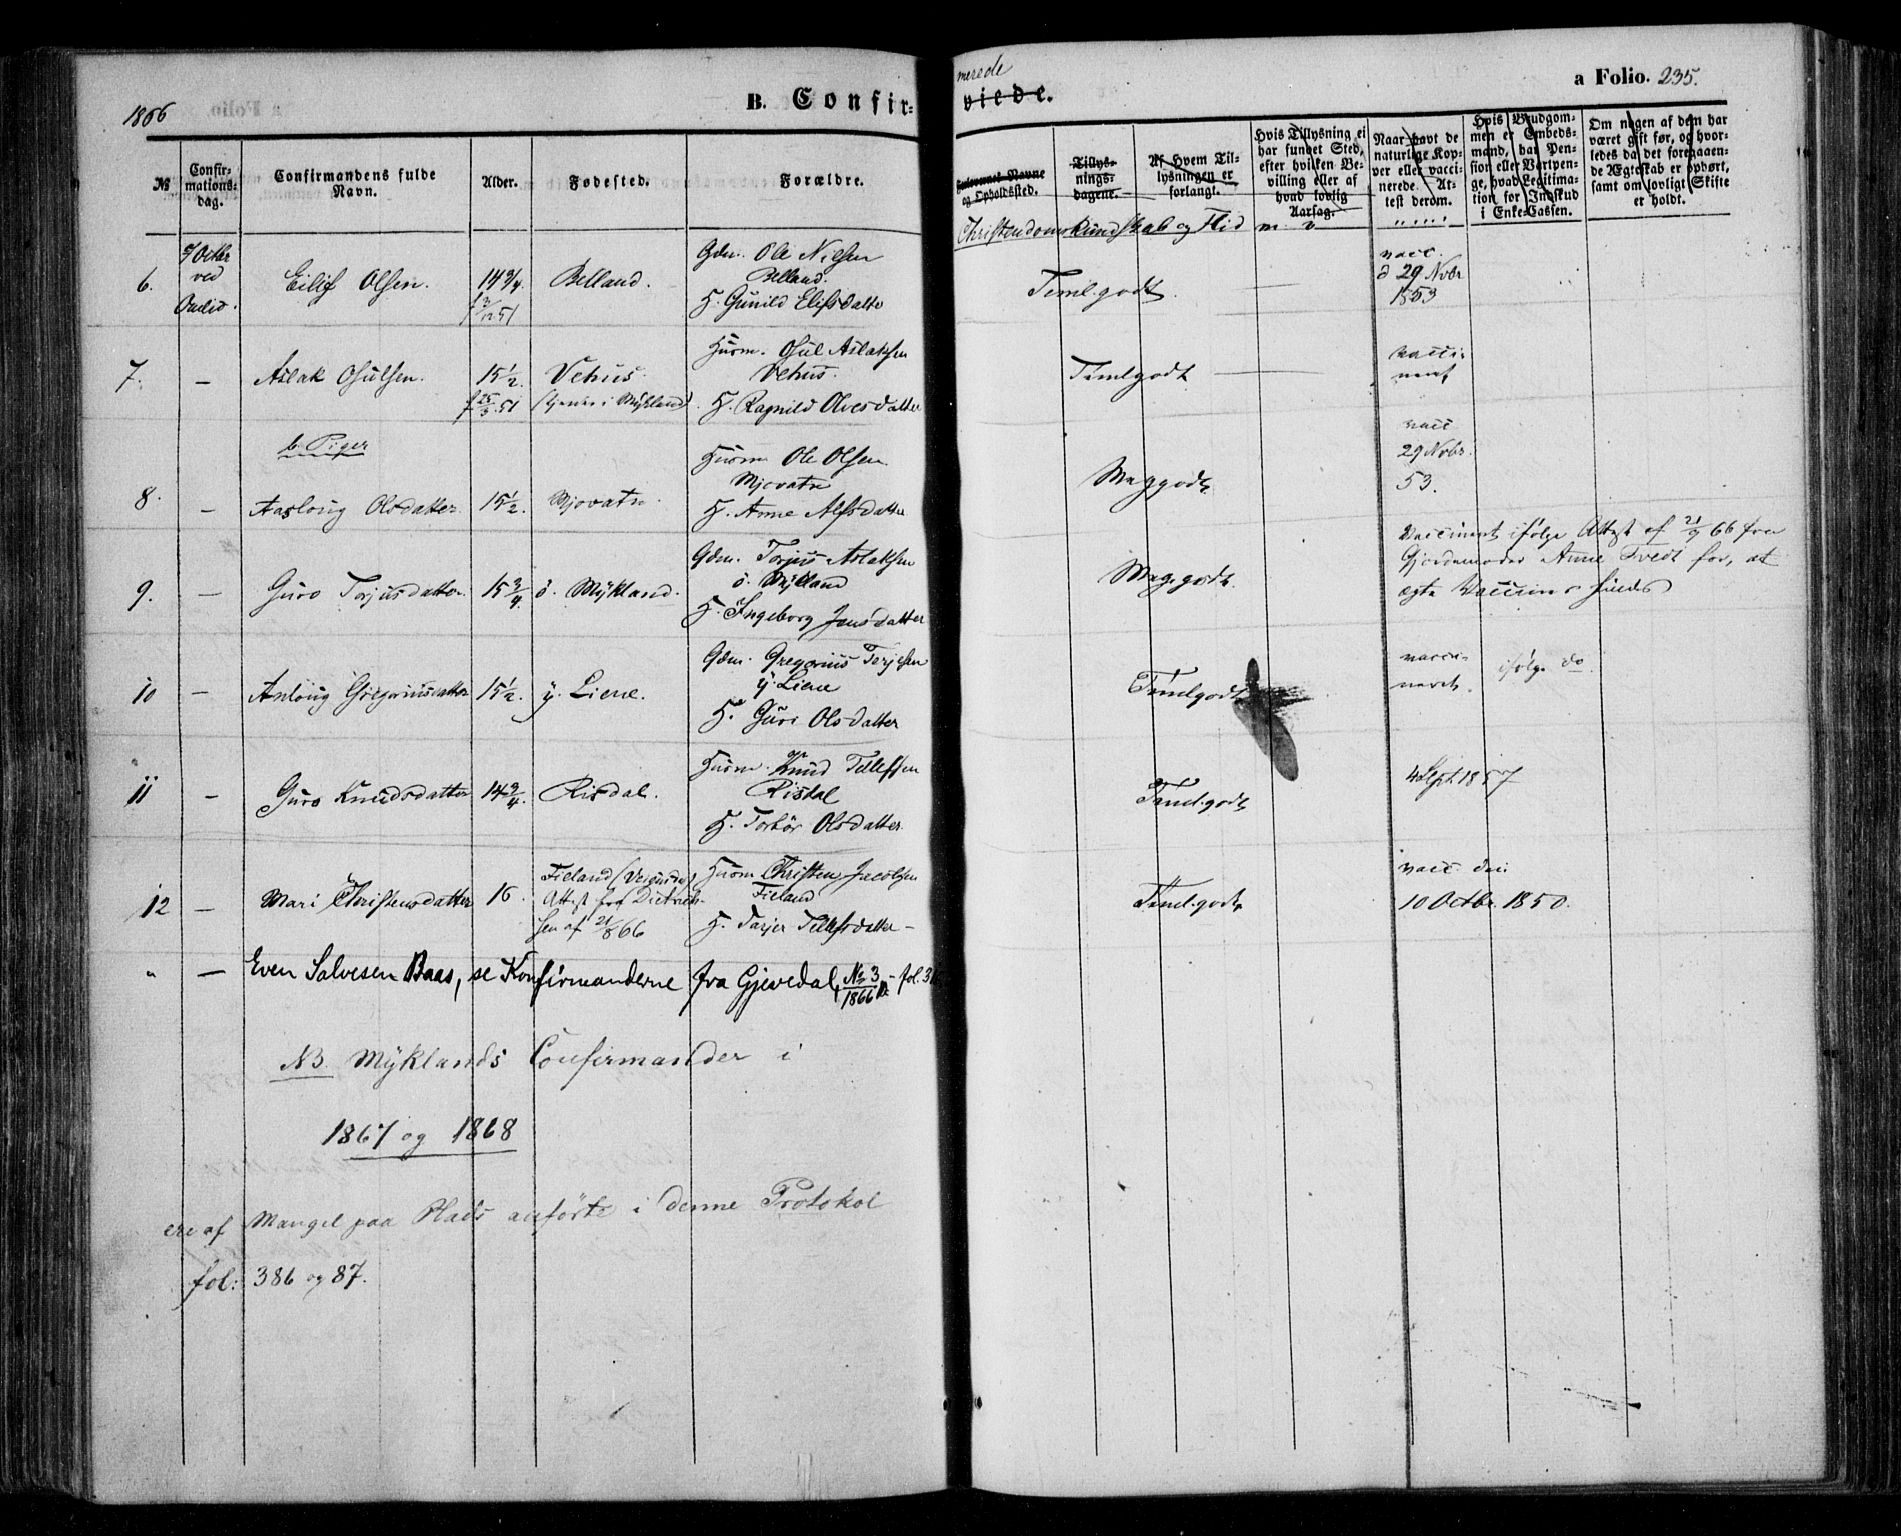 1866
B. Confir-
merede
viede.
a Folio. 235.
№
Confir-
mations-
dag.
Confirmandens fulde
Navn.
Alder.
Fødested.
Forældre.
og Opholdssted.
Tillys-
nings-
dagene.
Af Hvem Til-
lysningen er
forlangt.
Hvis Tillysning ei
har fundet Sted,
efter hvilken Be-
villing eller af
hvad lovlig
Aarsag.
Naar havt de
naturlige Kop-
per eller vacci-
nerede. At-
test derom.
Hvis Brudgom-
men er Embeds-
mand, har Pen-
sion eller Vartpen-
ge, hvad Legitima-
tion for Indskud
i Enke-Cassen.
Om nogen af dem har
været gift før, og hvor-
ledes da det foregaaen-
de Ægteskab er ophørt,
samt om lovligt Skifte
er holdt.
Christendomskundskab og Flid m. v
6.
7 Octbr
ved
Eilif Olsen.
14 3/4
Belland.
Gdm. Ole Nilsen
Belland.
H. Gunild Elifsdatte
Teml. godt.
vacc.
d 29 Nvbr
1853
7.
—
Aslak Osulsen.
15 1/2.
f 25/3 51
Vehus.
(tjener i Mykland)
Husm. Osul Aslaksen
Vehus.
H. Ragnild Olvesdatter
Temlgodt
vacci-
neret
b. Piger
8.
—
Aasloug Olsdatter.
15 1/2.
Mjovatn.
Husm Ole Olsen
Mjovatn
H. Anne Alfsdatter
Meg godt.
vacc
29 Nvbr.
53.
9.
—
Guro Torjusdatter.
15 3/4.
ö. Mykland.
Gdm. Torjus Aslaksen
ö. Mykland
H. Ingeborg Jensdatter
Meg. godt.
Vaccineret ifølge Attest af 21/9 66 fra
Gjordemoder Anne Tvedt for, at
ægte Vaccine fandtes
10
—
Anloug Gregoriusdatter
15 1/2.
y. Liene.
Gdm. Gregorius Terjesen
y. Liene
H. Guri Olsdatter
Temlgodt
vacci-
neret.
ifølge do
11
—
Guro Knudsdatter
14 3/4.
Risdal.
Husm. Knud Tellefsen
Risdal
H. Torbör Olsdatter
Teml. godt
4 Sept. 1857
12
—
Mari Christensdatter
16.
Fieland (Vegusdal)
Attest fra Dietrich-
sen af 21/8 66
Husm Christen Jacobsen
Fieland
H. Tarjer Tellefsdatter -
Teml. godt
vacc. den
10 Octbr. 1850.
" — Even Salvesen Baas, se Konfirmanderne fra Gjevedal, No 3/1866 - fol. 3
NB. Myklands Confirmander i
1867 og 1868
ere af Mangel paa Plads anførte i denne Protokol
fol: 386 og 87.